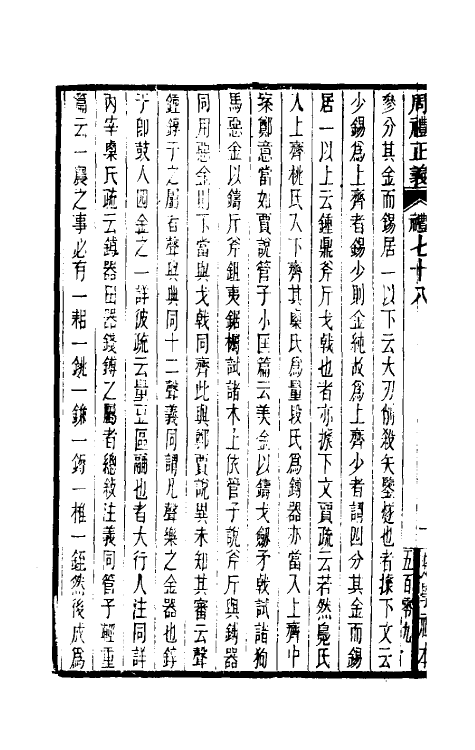 周禮正義 禮七十八
參分其金而錫居一以下云大刃削殺矢鑒燧也者據下文云
少錫爲上齊者錫少則金純故爲上齊少者謂四分其金而錫
居一以上云鍾鼎斧斤戈戟也者亦據下文賈疏云若然鳧氏
入上齊桃氏入下齊其㮚氏爲量段氏爲鎛器亦當入上齊中
案鄭意當如賈說管子小匡篇云美金以鑄戈劔矛戟試諸狗
馬惡金以鑄斤斧鉏夷鋸欘試諸木土依管子說斧斤與鎛器
同用惡金則下當與戈戟同齊此與鄭賈說異未知其審云聲
鍾錞于之屬者聲與典同十二聲義同謂凡聲樂之金器也錞
于卽鼓人四金之一詳彼疏云量豆區鬴也者大行人注同詳
內宰㮚氏疏云鎛器田器錢鎛之屬者總敍注義同管子輕重
篇云一農之事必有一耜一銚一鎌一鎒一椎一銍然後成爲